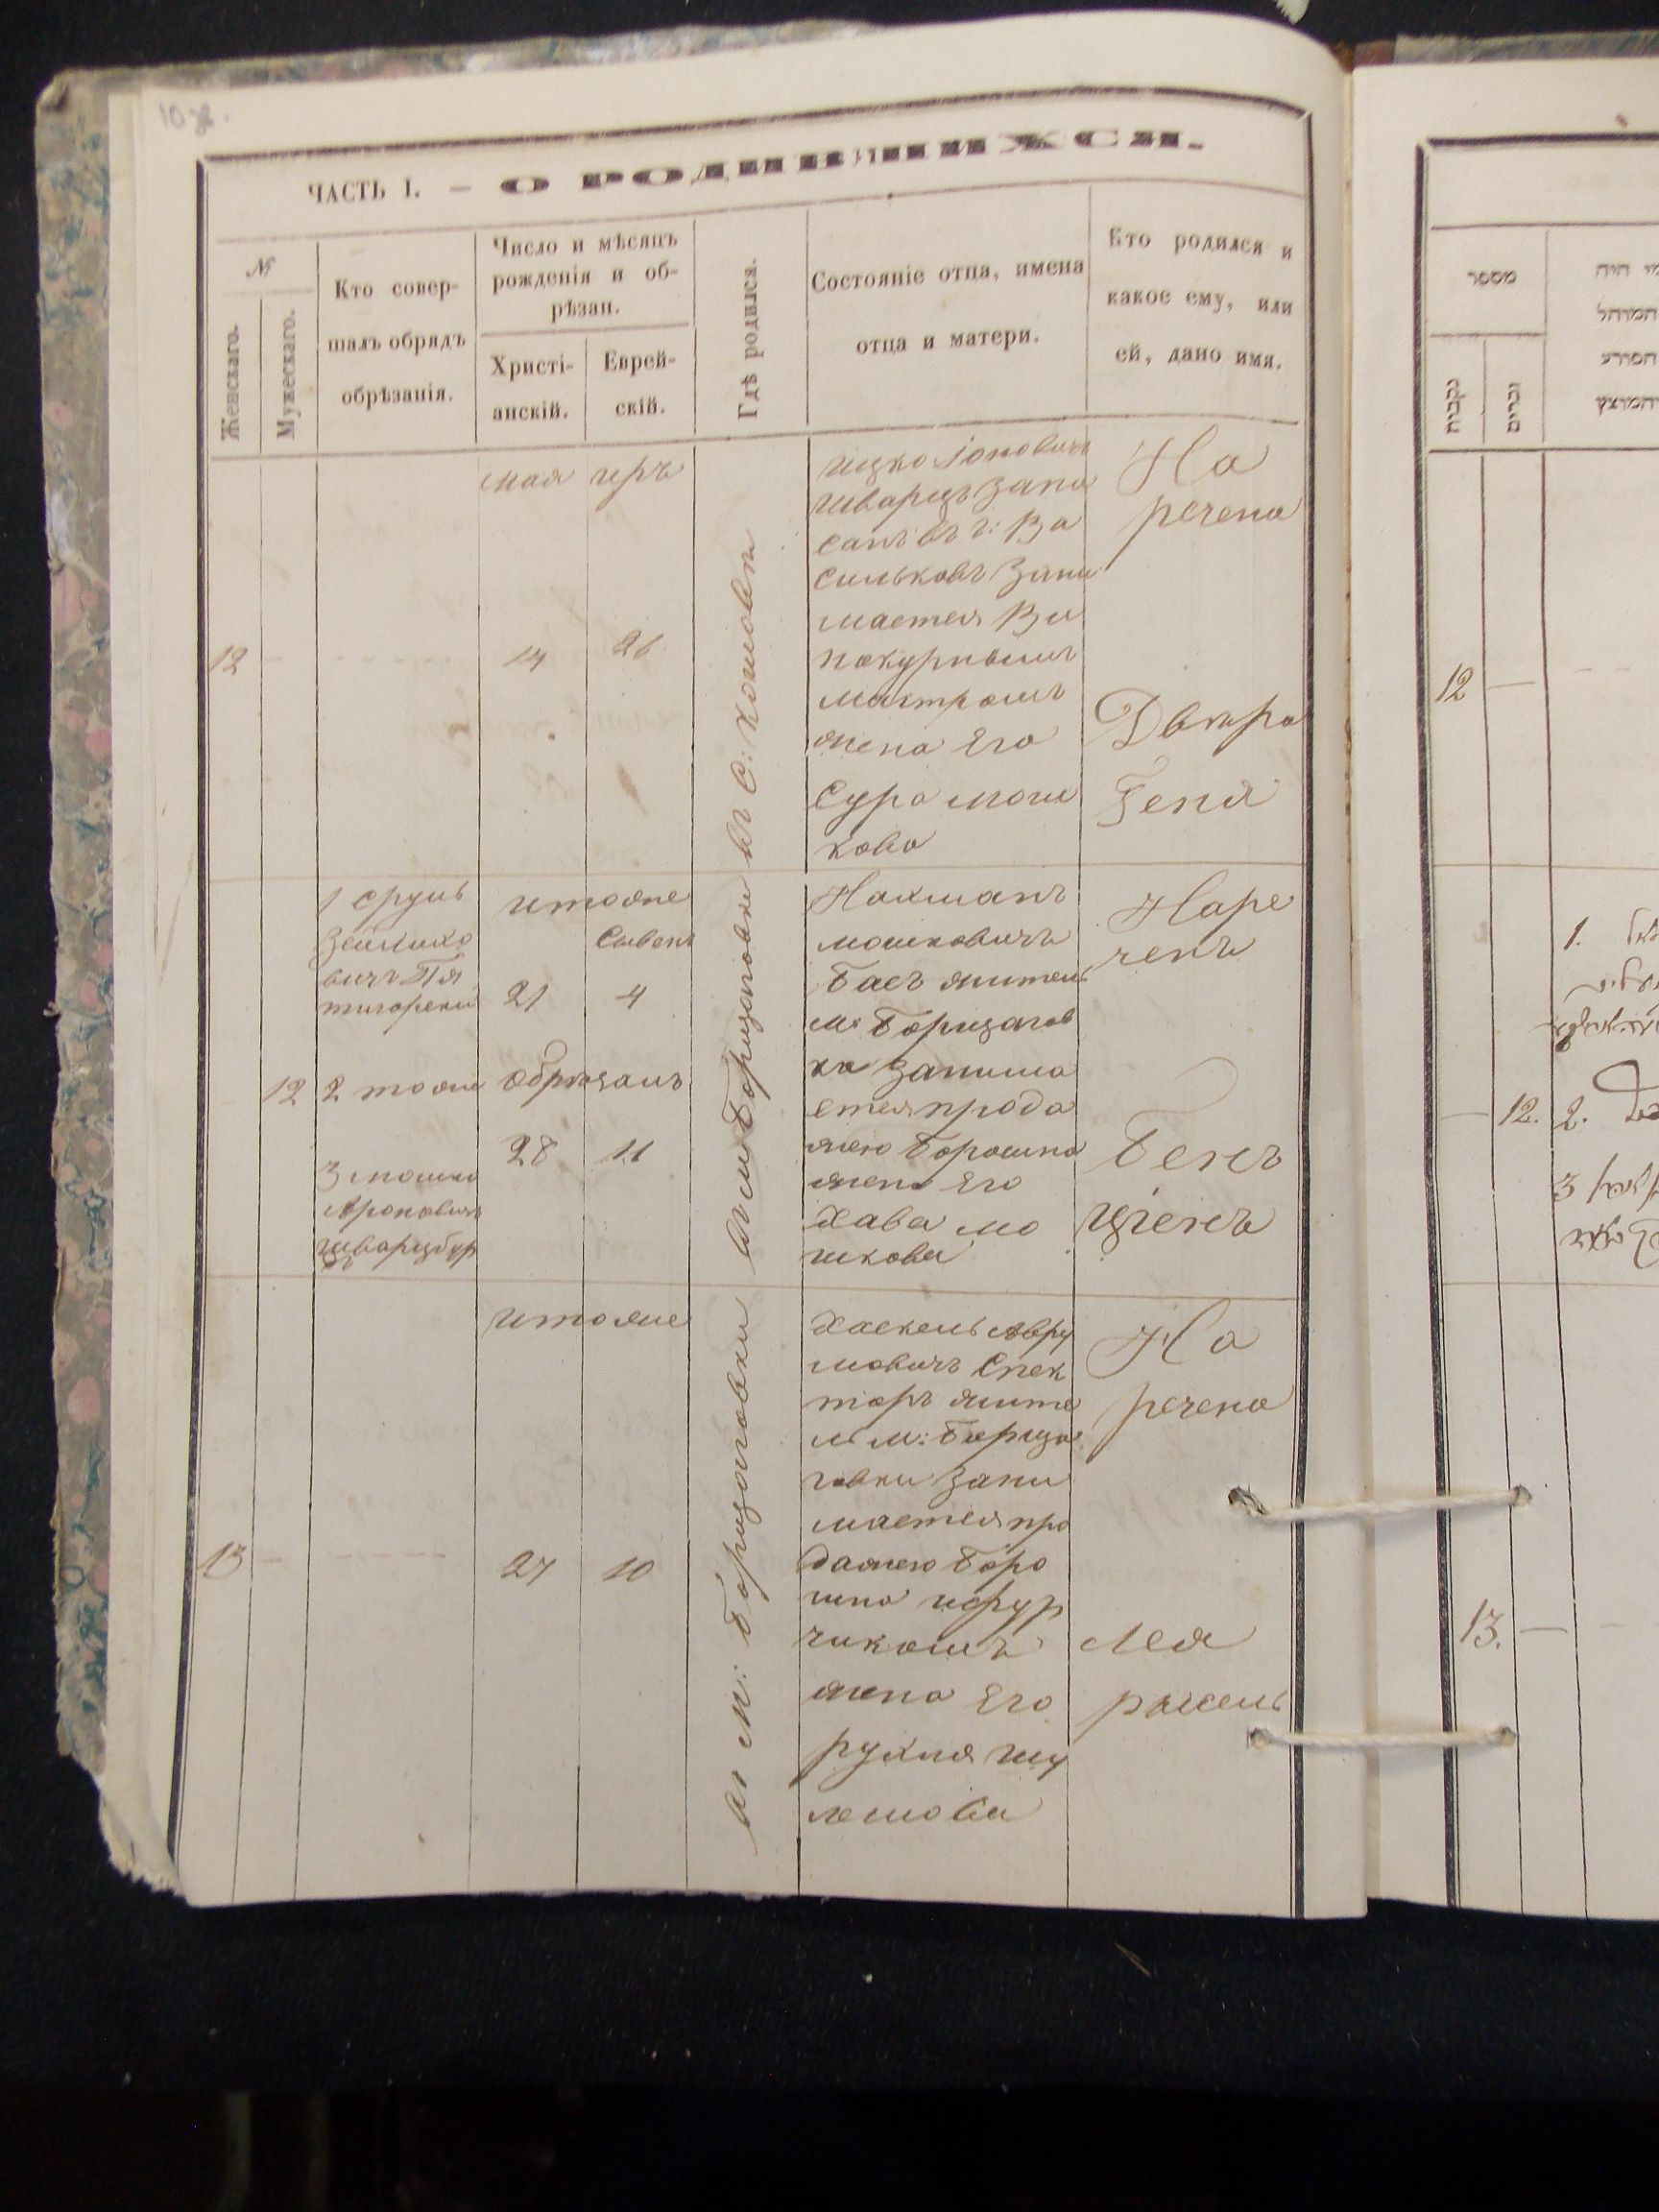 ЧАСТЬ I. — О РОДИВШИХСЯ.
№
Женскаго.
Мужескаго.
Кто совер-
шалъ обрядъ
обрѣзанія.
Число и мѣсяцъ
рожденія и об-
рѣзан.
Христі-
анскій.
Еврей-
скій.
Гдѣ родился.
Состояніе отца, имена
отца и матери.
Кто родился и
какое ему, или
ей, дано имя.
12
мая иръ
14 26
въ с:
Ицко Іоновичъ
Шварцъ запи
санъ въ г: Ва
сильковъ зани
мается ви
нокурнымъ
жена Его
Сура Мош
кова
На
речена
Двойра
Геня
12
1 Сруль
Зейлико
вичъ Пя
тигорски
2 тоже
3 Мошко
Ароновичъ
Шварцбур
гъ
итоже
Сивенъ
21 4
обрѣзанъ
28 11
въ м Борщаговки
Нахманъ
Мошковичъ
Басъ житель
м: Борщагов
ки занима
ется прода
жею борошна
жена Его
Хава Мо
шкова
Наре
ченъ
Бенъ
Ціенъ
13
итоже
27 10
въ м: Борщаговки
Хаскель Авру
мовичъ Спек
торъ жите
ль м: Борща
говки зани
мается про
дажею боро
шна ифур
чикомъ
жена Его
Рухля Шу
лемова
На
речена
Лея
Рысель
מספר
נקבות
זכרים
מי היה
המוהל
הפורע
והמוצץ
12
12.
1.
2.
3
13.